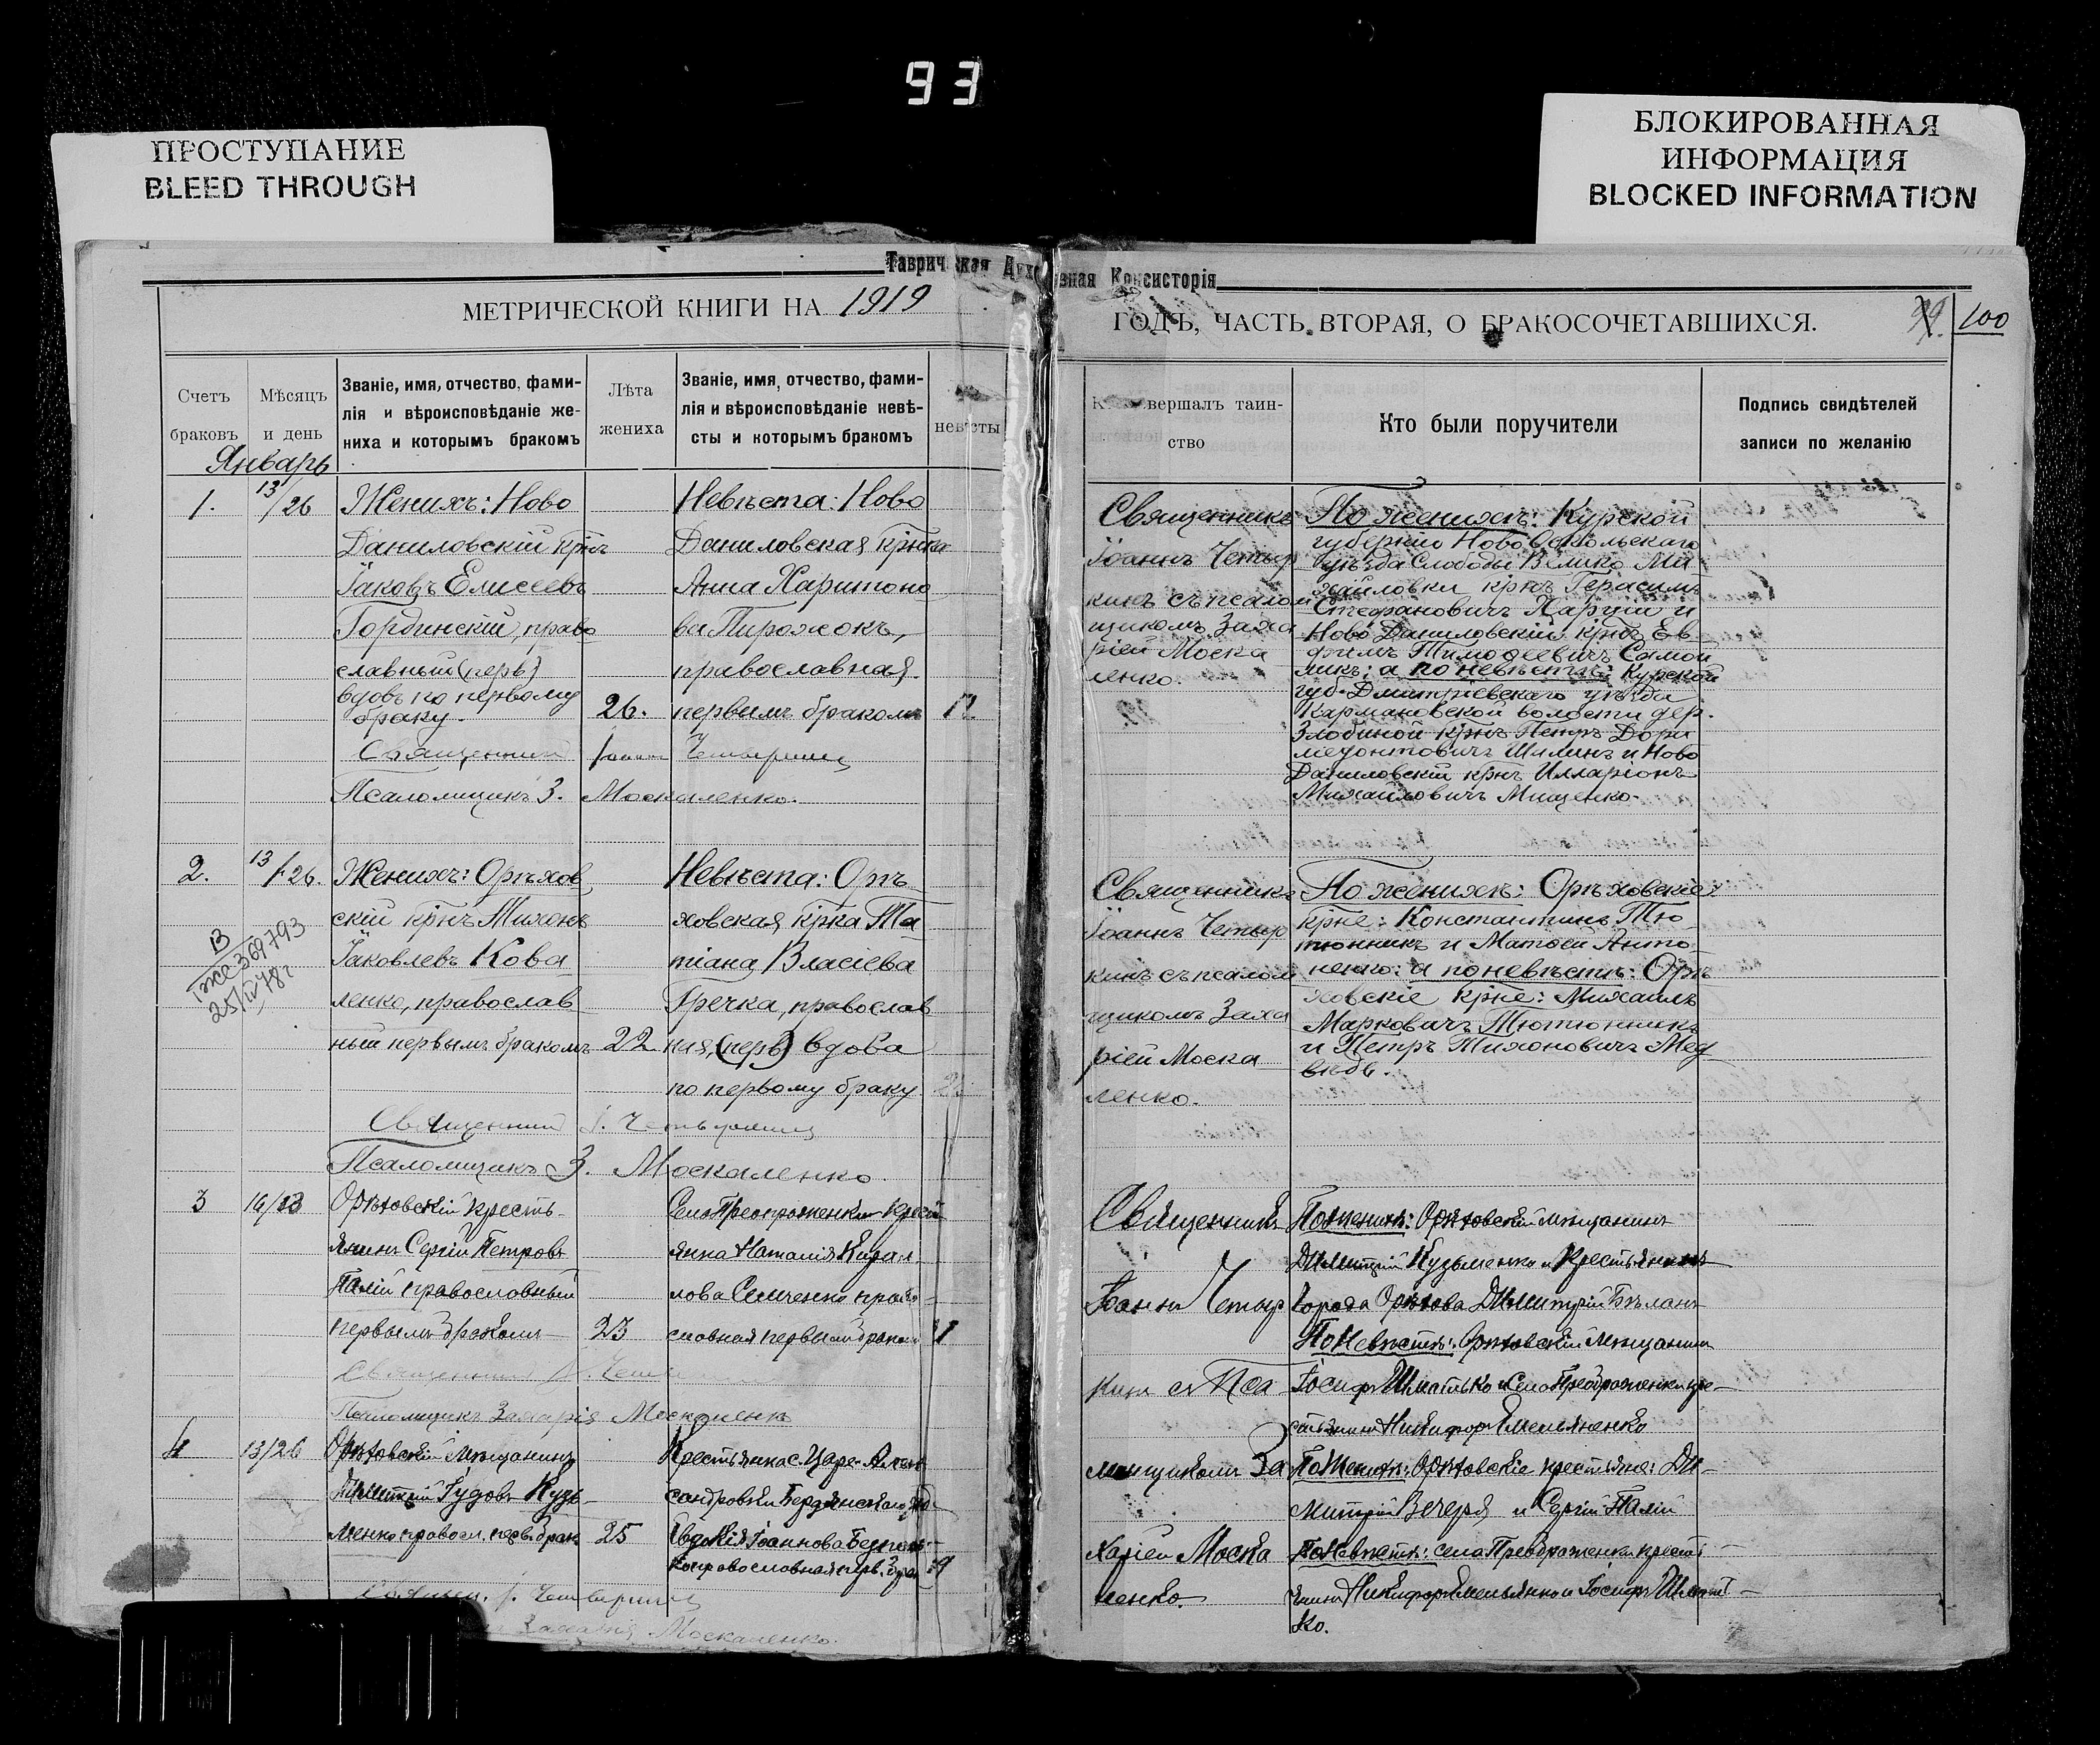 93
ПРОСТУПАНИЕ
BLEED THROUGH
БЛОКИРОВАННАЯ
ИНФОРМАЦИЯ
BLOCKED INFORMATION
Таврическая Духовная Консисторія
МЕТРИЧЕСКОЙ КНИГИ НА 1919
ГОДЪ, ЧАСТЬ ВТОРАЯ, О БРАКОСОЧЕТАВШИХСЯ.
99 100
Счетъ
браковъ
Мѣсяцъ
и день
Званіе, имя, отчество, фами-
лія и вѣроисповѣданіе же-
ниха и которымъ бракомъ
Лѣта
жениха
Званіе, имя, отчество, фами-
лія и вѣроисповѣданіе невѣ-
сты и которымъ бракомъ
невѣсты
вершалъ таин-
ство
Кто были поручители
Подпись свидѣтелей
записи по желанію
Январь
1.
13/26
Женихъ: Ново
Даниловскій крнъ
Іаковъ Елисеевъ
Гординскій, право
славный (перв)
вдовъ по первому
браку.
26.
Невѣста: Ново
Даниловская крнка
Анна Харитоно
ва Пирожокъ,
православная.
первымъ бракомъ
Священникъ
Псаломщикъ З. Москаленко.
Священникъ
Іоаннъ Четыр
кинъ съ псалом
щикомъ Заха
ріей Моска
ленко.
По женихѣ: Курской
губерніи Ново Оскольскаго
уѣзда Слободы Велико Ми
хайловки крнъ Герасимъ
Стефановичъ Царуій и
Ново Даниловскій крнъ Ев
фимъ Тимофеевичъ Самой
ликъ; а по невѣстѣ: Курской
губ. Дмитріевскаго уѣзда
Кармановской волости дер.
Злобиной крнъ Петръ Дори
медонтовичъ Шилинъ и Ново
Даниловскій крнъ Илларіонъ
Михайловичъ Мищенко.
2.
13/26.
13
369793
25/IV 78 г
Женихъ: Орѣхов
скій крнъ Тихонъ
Іаковлевъ Кова
ленко, православ
ный первымъ бракомъ
22
Невѣста: Орѣ
ховская крнка Та
тіана Власіева
Гречка, православ
ная, (перв) вдова
по первому браку
Священникъ І.
Псаломщикъ З. Москаленко.
Священникъ
Іоаннъ Четыр
кинъ съ псалом
щикомъ Заха
ріей Моска
ленко.
По женихѣ: Орѣховскіе
крне: Константинъ Тю
тюнникъ и Матѳей Анто
ненко: а по невѣстѣ: Орѣ
ховскіе крне: Михаилъ
Марковичъ Тютюнникъ
и Петръ Тихоновичъ Мед
вѣдь.
3
Орѣховскій кресть-
янинъ Сергій Петровъ
Палій православный
первымъ бракомъ
23
Села Преображенки крест
янка Наталія Кирил
лова Семченко право-
славная первымъ бракомъ
Псаломщикъ Захарія Москаленко
Священникъ
Іоаннъ Четыр
кинъ съ Пса
ломщикомъ За
харіей Моска
ленко.
По женихѣ: Орѣховскій мѣщанинъ
Димитрій Кузьменко и крестьянинъ
города Орѣхова Димитрій Бѣланъ
По невѣстѣ: Орѣховскій мѣщанинъ
Іосифъ Шматько и села Преображенки кре-
стьянинъ Никифоръ Емельяненко
4
13/26
Орѣховскій мѣщанинъ
Димитрій Іудовъ Кузь-
менко правосл. перв. брак.
25
Крестьянка с. Царе-Алек
сандровки Бердянскаго
Евдокія Іоаннова
православная перв. брак
Москаленко.
По женихѣ: Орѣховскіе крестьяне: Ди-
митрій Вечеря и Сергій Палій
По невѣстѣ: села Преображенки крест
янинъ Никифоръ Емельянко и Іосифъ Шмать-
ко.